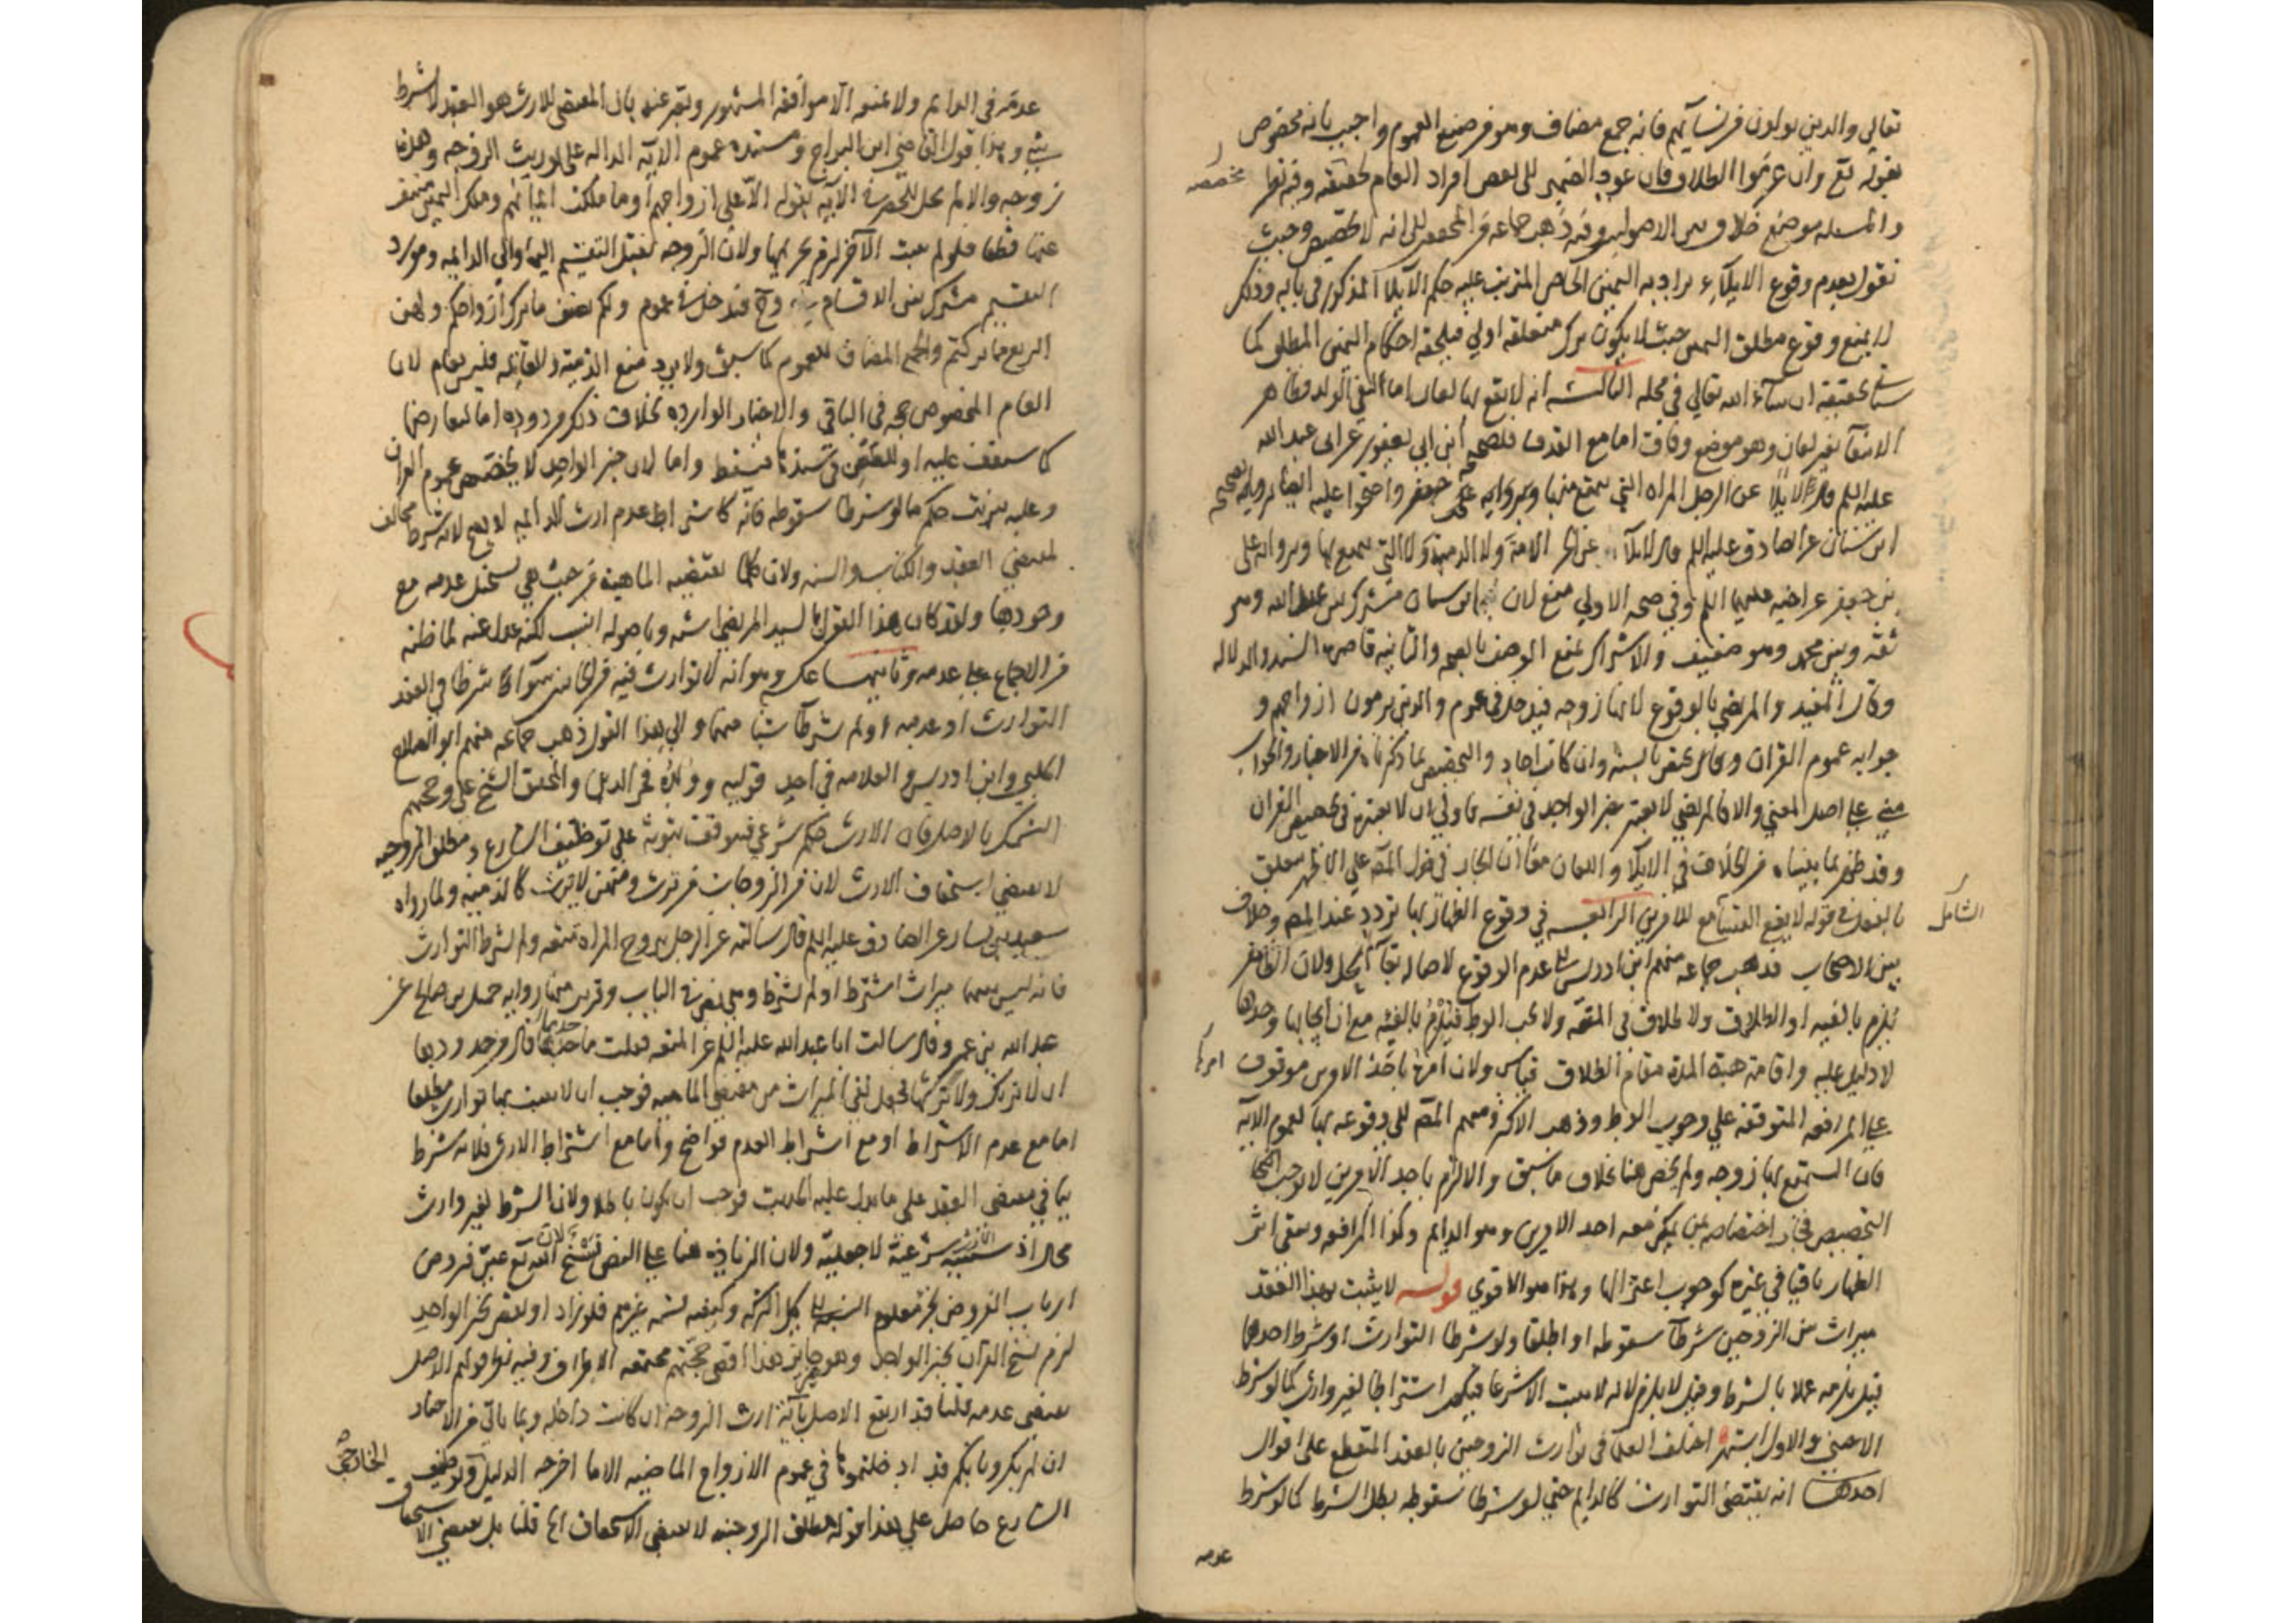 تعالي والذين يولون من نسائهم فانه جمع مضاف وهو من صيغ العموم واجيب بانه مخصوص
بقوله تع وان عزموا الطلاق فان عود الضمير الى بعض افراد العام تخصصه وفيه نظر
والمسئله موضع خلاف بين الاصوليين وقد ذهب جماعه من المحققين الى انه لا تخصيص وحيث
نقول بعدم وقوع الايلاء يراد به اليمين الخاص المترتب عليه حكم الايلا المذكور في بابه وذلك
لا يمنع وقوع مطلق اليمين حيث لا يكون ترك متعلقه اولي فيلحقه احكام اليمين المطلق كما
ستحققه ان شاء الله تعالي في محله الثالثه انه لا يقع بها لعان اما لنفي الولد فظاهر
الانتفآ بغير لعان وهو موضع وفاق اما مع القذف فلصحيحه ابن ابي يعفور عن ابي عبد الله
عليه السلم قال لا يلا عن الرجل المراه التي يتمتع منها وبرواية محمد جعفر واحتجوا عليه ايضا برواية صحيحه
ابن سنان عن الصادق عليه السلم قال لا يلا عن الحر الامة ولا الذمية ولا التي يتمتع بها وبرواية على
بن جعفر عن اخيه عليهما السلم وفي صحه الاولي منع لان ابن سنان مشترك بين عبد الله وهو
ثقه وبين محمد وهو ضعيف والاشتراك يمنع الوصف بالصحه والثانيه قاصرة السند والدلاله
وقال المفيد والمرتضي بالوقوع لانها زوجه فيدخل في عموم والذين يرمون ازواجهم و
جوابه عموم القران وان كانت احاد والتخصيص بما ذكرناه من الاخبار والجواب
مبني علي اصل المعني والا فالمرتضي لا يعتبر بخبر الواحد في نفسه فاولي ان لا يعتبره في تخصيص القران
وقد ظهر بما بيناه من الخلاف في الايلآ واللعان معا ان الجار في قول المص على الاظهر متعلق
بالفعل في قوله لا يقع ليتسآمع للامرين الرابعه في وقوع الظهار بها تردد عند المص وخلاف
الشامل
بين الاصحاب فذهب جماعه منهم ابن ادريس الى عدم الوقوع لاصاله بقآ الحل ولان المظاهر
يلزم بالفيه او الطلاق ولا طلاق في المتعه ولا يجب الوطء فيلزم بالفئه مع ان ايجابها وحدها
لا دليل عليه واقامة هبة المدة مقام الطلاق قياس ولان امره باحد الامرين موقوف
علي المرافعه المتوقفه علي وجوب الوطء وذهب الاكثر ومنهم المص الى وقوعه بها لعموم الايه
فان المستمتع بها زوجه ولم يخص هنا بخلاف ما سبق والالزام باحد الامرين لا يوجب
التخصيص فجاز اختصاصه بمن يمكن معه احد الامرين وهو الدايم وكذا المرافعه ويبقي اثر
الظهار باقيا في غيره كوجوب اعتزالها وهذا هو الاقوي قوله لا يثبت بهذا العقد
ميراث بين الزوجين شرطآ سقوطه او اطلقا ولو شرطا التوارث او شرط احدهما
قيل يلزم عملا بالشرط وقيل لا يلزم لانه لا يثبت الا شرعا فيكون اشتراطا لغير وارث كما لو شرط
الاجنبي والاول اشهر اختلف العلما في توارث الزوجين بالعقد المنقطع على اقوال
احدها انه يقتضي التوارث كالدايم حتي لو شرطا سقوطه بطل الشرط كما لو شرط
عدمه
عدمه في الدايم والمقتضي للارث هو العقد لا بشرط
شئ وهذا قول القاضي ابن البراج ومستنده عموم الايه الداله على توريث الزوجه وهذه
زوجه والا لم تحل للحصر في الايه بقوله الا على ازواجهم او ما ملكت ايمانهم وملك اليمين منتف
عنها قطعا فلو لم يثبت الاخر لزم تحريمها ولان الزوجه تقبل التقسيم اليها والي الدايمه ومورد
التقسيم مشترك بين الاقسام وح فتدخل في عموم ولكم نصف ما ترك ازواجكم ولهن
الربع مما تركتم والجمع المضاف للعموم كما سبق ولا يرد منع الذمية والقاتله فليس بعام لان
العام المخصوص حجه في الباقي والاخبار الوارده بخلاف ذلك مردوده اما لتعارضها
كما ستقف عليه او لضعف في سندها فيسقط واما لان خبر الواحد لا يخصص عموم القران
وعليه يترتب حكم ما لو شرطا سقوطه فانه كاشتراط عدم ارث الدايمه لا يصح لانه شرط مخالف
لمقتضي العقد والكتاب والسنه ولان كلما تقتضيه الماهية من حيث هي يستحيل عدمه مع
وجودها ولقد كان هذا القول بالسيد المرتضي اشبه وباصوله انسب لكنه عدل عنه لما ظنه
من الاجماع علي عدمه وثانيها عكسه وهو انه لا توارث فيه من الجانبين سوآء شرطا في العقد
التوارث او عدمه او لم يشرطآ شيا منهما والي هذا القول ذهب جماعه منهم ابو الصلاح
الحلبي وابن ادريس والعلامه في احد قوليه وولده فخر الدين والمحقق الشيخ علي وحجتهم
التمسك بالاصل فان الارث حكم شرعي فيتوقف ثبوته علي توظيف الشارع ومطلق الزوجيه
لا يقتضي استحقاق الارث لان من الزوجات من ترث ومنهن لا ترث كالذمية ولما رواه
سعيد بن يسار عن الصادق عليه السلم قال سالته عن الرجل يتزوج المراه متعه ولم يشترط التوارث
قال ليس بينهما ميراث اشترط او لم يشترط وهي نص في الباب وقريب منها رواية جميل بن صالح عن
عبد الله بن عمرو قال سالت ابا عبد الله عليه السلم عن المتعه فقلت ما حدها قال من حدودها
ان لا ترثك ولا ترثها فجعل نفي الميراث من مقتضي الماهيه فوجب ان لا يثبت بها توارث مطلقا
اما مع عدم الاشتراط او مع اشتراط العدم فواضح واما مع اشتراط الارث فلانه شرط
ينافي مقتضي العقد علي ما دل عليه الحديث فوجب ان يكون باطلا ولان الشرط لغير وارث
محال اذ سببيه الارث شرعية لا جعلية ولان الزيادة هنا علي النص نسخ لان الله تع عين فروض
ارباب الفروض فلو زاد او نقص بخبر الواحد
لزم نسخ القران بخبر الواحد وهو غير جايز هذا اقصي حجتهم مجتمعه الاطراف وفيه نظر قولهم الاصل
يقتضي عدمه قلنا قد ارتفع الاصل بآية ارث الزوجه ان كانت داخله وبما ياتي من الاخبار
ان لم يكن وبابكم قد ادخلتموها في عموم الازواج الماضيه الا ما اخرجه الدليل وتوظيف
الخارجي
الشارع حاصل علي هذا قوله مطلق الزوجيه لا يقتضي الاستحقاق الخ قلنا بل يقتضي الاستحقاق